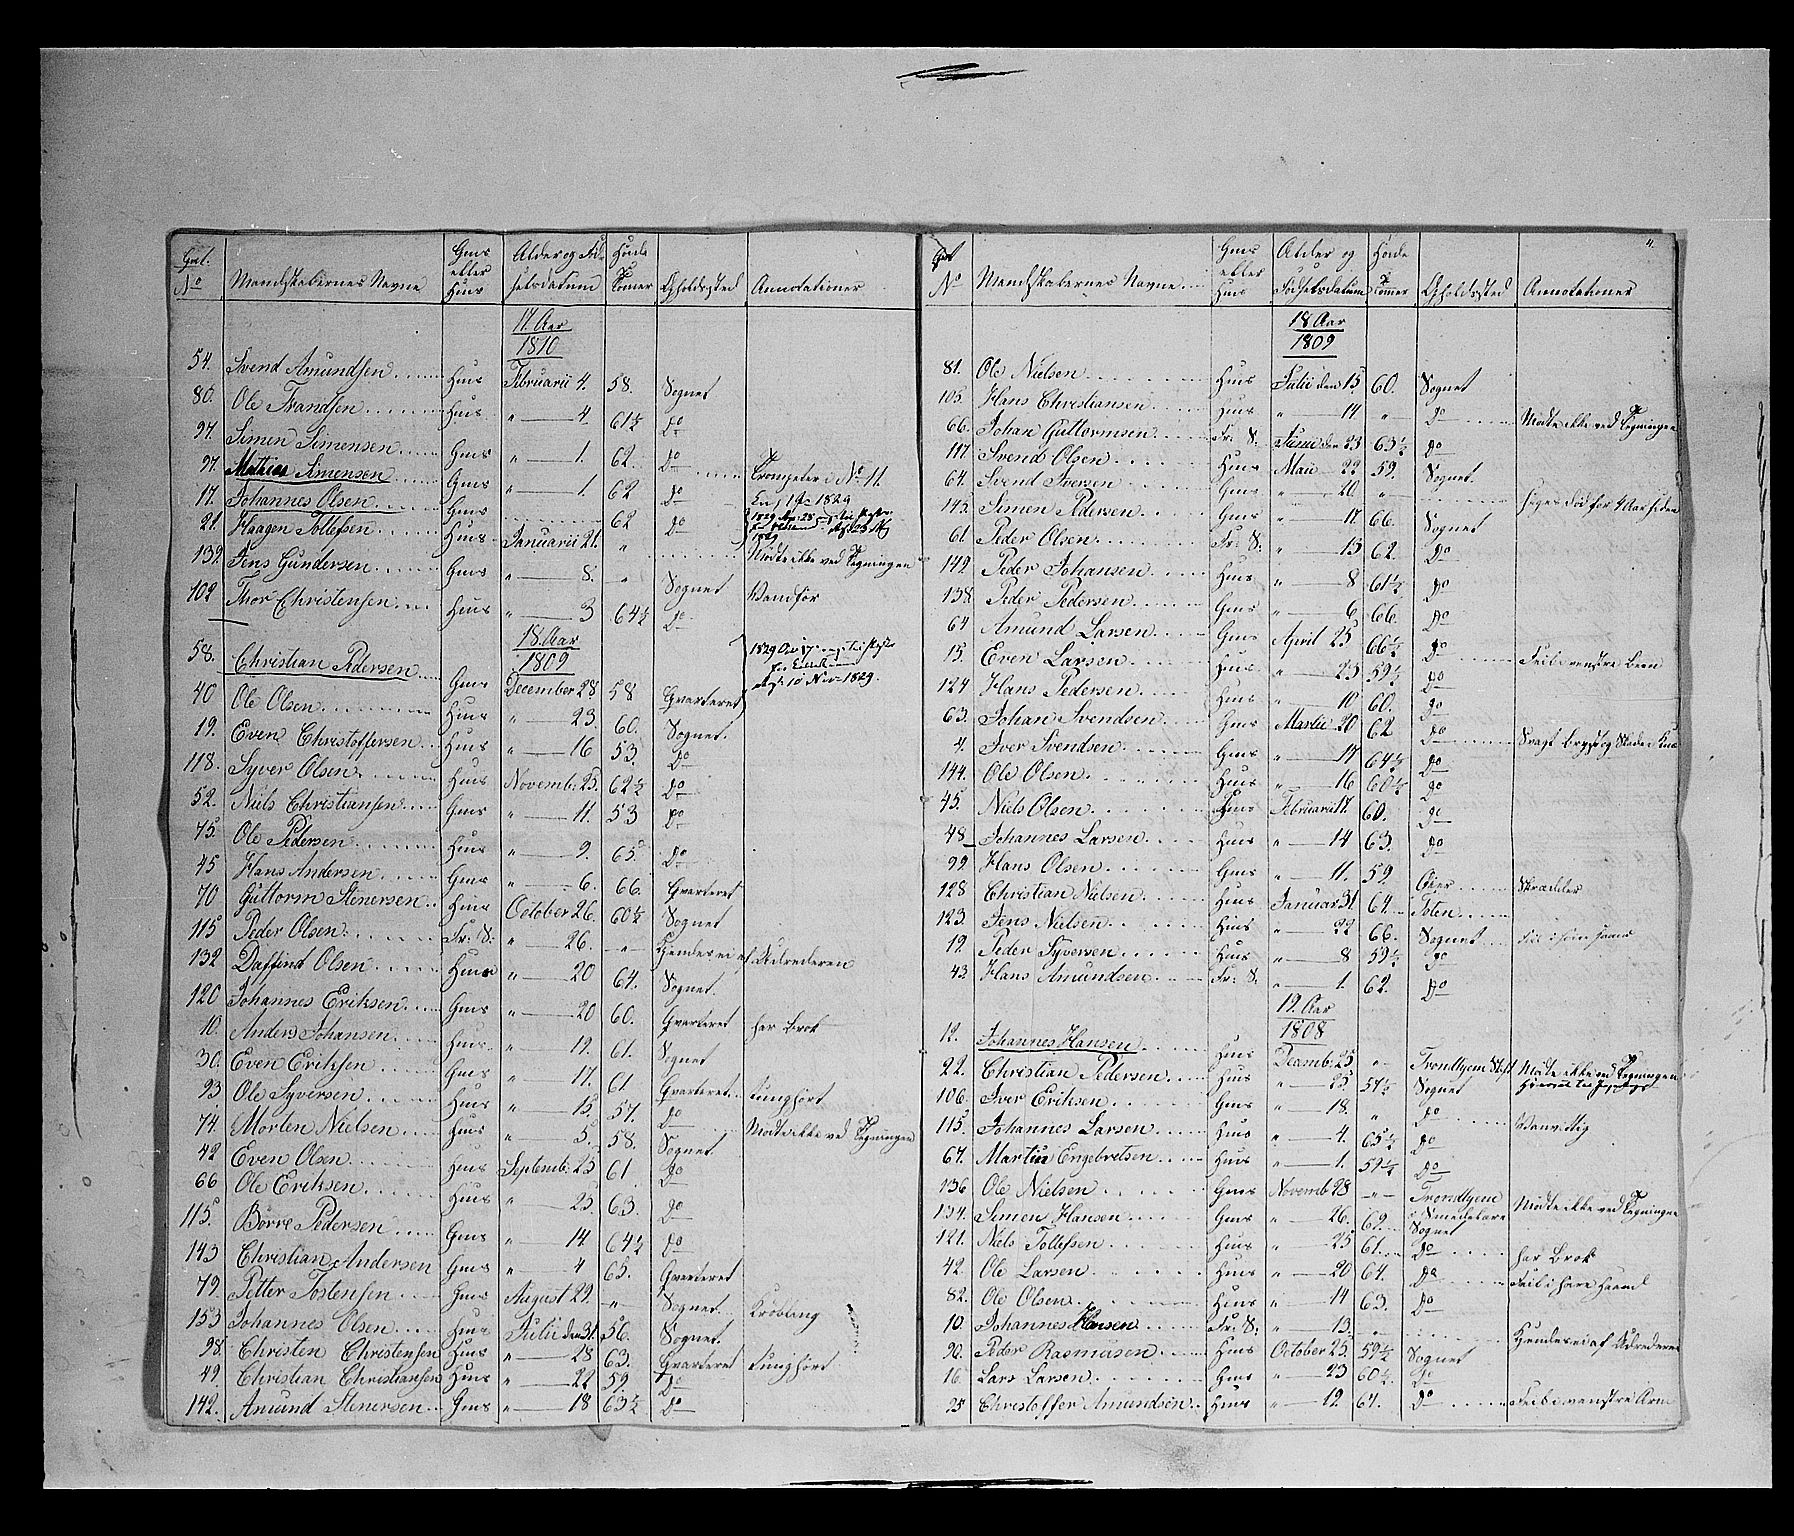 No Mandskabernes Navne Huus Alder og Fødselsdatum Høide Tommer Opholdssted Annotationer
17 Aar
1810
54. Svend Amundsen Huus Februarii 4. 58. Sognet
80. Ole Frandsen Huus " 4. 61½ Do
97. Simen Simensen Huus " 1. 62. Do
97. Mathias Simensen " 1. 62 Do Trompeter No 11.
17. Johannes Olsen Huus 62 Do
21. Haagen Tollefsen Huus Januarii 21. " Mødte ikke ved Tegningen
139. Jens Gundersen " 8. " Sognet Vanfør
102 Thor Christensen Huus " 3 64½ Do
18. Aar
1809
58. Christian Pedersen December 28. 58 Qvarteret
40 Ole Olsen Huus " 23. 60. Sognet.
19. Even Christoffersen Huus " 16 53. Do
118. Syver Olsen Huus Novemb: 25. 62½ Do
52. Niels Christiansen " 11. 53 Do
75. Ole Pedersen Huus " 9. 65. Do
45 Hans Andersen " 6. 66. Qvarteret
70 Guttorm Stenersen Huus October 26. 60½ Sognet
115 Peder Olsen Fr: S: " 26. " Kjendes ei af Udrederen
132 Daffind Olsen Huus " 20 64. Sognet.
120 Johannes Eriksen " 20 60. Qvarteret har Brok
10. Anders Johansen Huus " 19. 61. Sognet
30. Even Eriksen " 17. 61. Qvarteret Tunghørt
93 Ole Syversen Huus " 15. 57. Do
74. Morten Nielsen Huus " 5. 58. Sognet Mødte ikke ved Tegningen
42 Even Olsen Huus Septemb: 25 61. Do
66 Ole Eriksen Huus " 25. 63. Do
115. Børre Pedersen " 14 64½ Do
143 Christian Andersen " 4 65. Qvarteret
79. Petter Tostensen August 29. " Sognet. Krøbling
153 Johannes Olsen Huus Julii den 31. 56. Sognet
98. Christen Christensen Huus " 28 63. Qvarteret Tunghørt
49. Christian Christiansen Huus " 22 59. Do
142. Amund Stenersen " 18 63½ Do
No Mandskabernes Navne Huus Alder og Fødselsdatum Høide Tommer Opholdssted Annotationer
18 Aar
1809
81. Ole Nielsen Huus Julii den 15. 60. Sognet
105. Hans Christiansen Huus " 14 " Do Mødte ikke ved Tegningen
66. Johan Guttormsen Fr: S: Junii den 23 63½ Do
117. Svend Olsen Huus Maii 22 59. Sognet
64. Svend Iversen " 20 "
145. Simen Pedersen " 17. 66. Sognet
61. Peder Olsen Fr: S: " 13 62. Do
149. Peder Johansen Huus " 8 61½ Do
138. Peder Pedersen " 6. 66. Do
64 Amund Larsen April 25 66½ Do
15. Even Larsen Huus " 23 59½ Do Feil i venstre Been
124 Hans Pedersen Huus " 10 60. Do
63. Johan Svendsen Huus Martii 20 62 Do
4. Iver Svendsen " 17 64½ Do
144. Ole Olsen Huus " 16 60½ Do
45. Niels Olsen Huus Februarii 17. 60. Do
48. Johannes Larsen Huus " 14 63. Do
99. Hans Olsen " 11. 59. Skrædder
128 Christian Nielsen Huus Januar 31. 64. Toten
123. Jens Nielsen Huus " 22 66. Sognet
19. Peder Syversen Huus " 8 59½ Do
43. Hans Amundsen Fr: S: " 1. 62. Do
19. Aar
1808
12. Johannes Hansen Huus Decemb: 25. " Mødte ikke ved Tegningen
22. Christian Pedersen Huus " 25. 57½ Sognet
106. Iver Eriksen " 18. " Do Vanvittig
115. Johannes Larsen Huus " 4. 65½ Do
67. Martin Engebretsen Huus " 1. 59½ Do
136 Ole Nielsen Novemb 28 " Trondhjem Mødte ikke ved Tegningen
134. Simen Hansen " 26. 62. Sognet
121. Niels Tollefsen Huus " 25 61. Do har Brok
42. Ole Larsen Huus " 20 64. Do
82. Ole Olsen Huus " 14 63. Do
10. Johannes Hansen Fr: S: " 13. " Kjendes ei af Udrederen
90. Peder Rasmusen Huus October 25. 59½ Sognet
16. Lars Larsen Huus " 23 60½ Do
25 Christoffer Amundsen Huus " 12. 64. Do Feil i venstre Arm